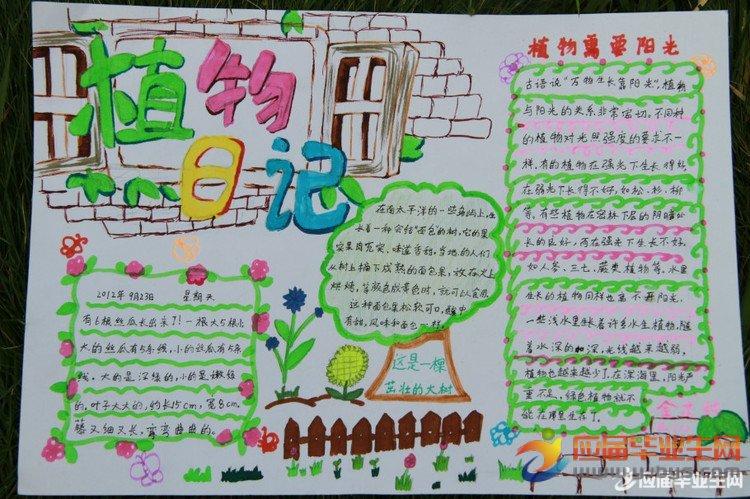 植物
日记
植物需要阳光
古语说"万物生长靠阳光",植物
与阳光的关系非常密切。不同种
的植物对光照强度的要求不一
样,有的植物在强光下生长得好,
在弱光下长得不好,如松、杉、柳
等,有些植物在密林下层的阴暗处
长的良好,而在强光下生长不好,
如人参、三七、蕨类植物等,水里
生长的植物同样也离不开阳光,
一些浅水里长着许多水生植物,随
着水深的加深,光线越来越弱,
植物也越来越少了,在深海里,阳光严
重不足,绿色植物就不
能在那里生存了。
在南太平洋的一些岛屿上,生
长着一种会结"面包的树,它的果
实果肉充实,味道香甜,当地的人们
从树上摘下成熟的面包果,放在火上
烘烤,等颜色成黄色时,就可以食用。
这种面包果松软可口,酸中
有甜,风味和面包一样。
这是一棵
茁壮的大树
2012年9月23日 星期天
有6根丝瓜长出来了!一根大5根小
大的丝瓜有5条线,小的丝瓜有5条
线。大的是深绿的,小的是嫩绿
的,叶子大大的,约长15cm,宽8cm。
藤又细又长,弯弯曲曲的。
应届毕业生网
应届毕业生网